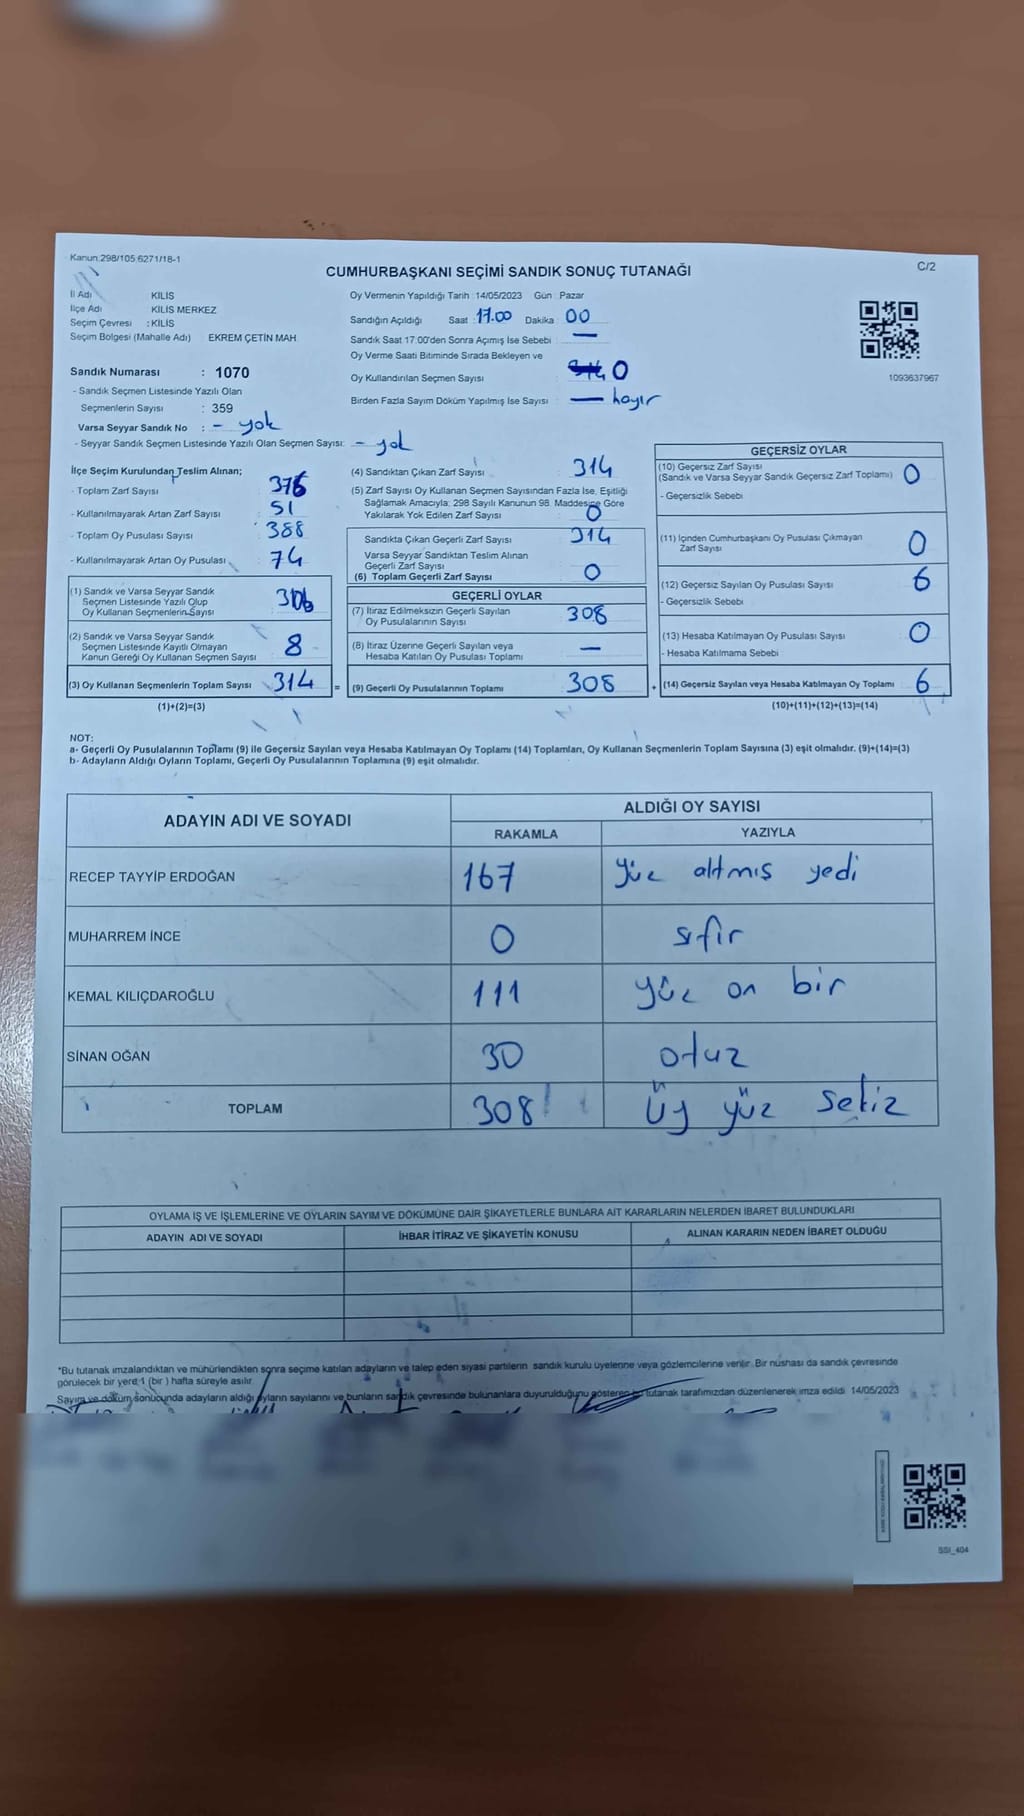 Kanun:298/105:6271/18-1
CUMHURBAŞKANI SEÇİMİ SANDIK SONUÇ TUTANAĞI
C/2
İl Adı KİLİS
İlçe Adı KİLİS MERKEZ
Seçim Çevresi : KİLİS
Seçim Bölgesi (Mahalle Adı) EKREM ÇETİN MAH
Sandık Numarası : 1070
- Sandık Seçmen Listesinde Yazılı Olan
Seçmenlerin Sayısı : 359
Varsa Seyyar Sandık No : - yok
- Seyyar Sandık Seçmen Listesinde Yazılı Olan Seçmen Sayısı: - yok
Oy Vermenin Yapıldığı Tarih : 14/05/2023 Gün : Pazar
Sandığın Açıldığı Saat : 17.00 Dakika : 00
Sandık Saat 17:00'den Sonra Açımış İse Sebebi : —
Oy Verme Saati Bitiminde Sırada Bekleyen ve
Oy Kullandırılan Seçmen Sayısı : 0
Birden Fazla Sayım Döküm Yapılmış İse Sayısı : — hayır
1093637967
İlçe Seçim Kurulundan Teslim Alınan;
- Toplam Zarf Sayısı
- Kullanılmayarak Artan Zarf Sayısı : 51
- Toplam Oy Pusulası Sayısı : 388
- Kullanılmayarak Artan Oy Pusulası : 74
(1) Sandık ve Varsa Seyyar Sandık
Seçmen Listesinde Yazılı Olup
Oy Kullanan Seçmenlerin Sayısı 306
(2) Sandık ve Varsa Seyyar Sandık
Seçmen Listesinde Kayıtlı Olmayan
Kanun Gereği Oy Kullanan Seçmen Sayısı 8
(3) Oy Kullanan Seçmenlerin Toplam Sayısı 314 =
(1)+(2)=(3)
(4) Sandıktan Çıkan Zarf Sayısı : 314
(5) Zarf Sayısı Oy Kullanan Seçmen Sayısından Fazla İse, Eşitliği
Sağlamak Amacıyla; 298 Sayılı Kanunun 98. Maddesine Göre
Yakılarak Yok Edilen Zarf Sayısı : 0
Sandıkta Çıkan Geçerli Zarf Sayısı : 314
Varsa Seyyar Sandıktan Teslim Alınan
Geçerli Zarf Sayısı
(6) Toplam Geçerli Zarf Sayısı : 0
GEÇERLİ OYLAR
(7) İtiraz Edilmeksizin Geçerli Sayılan
Oy Pusulalarının Sayısı : 308
(8) İtiraz Üzerine Geçerli Sayılan veya
Hesaba Katılan Oy Pusulası Toplamı : —
(9) Geçerli Oy Pusulalarının Toplamı 308 +
GEÇERSİZ OYLAR
(10) Geçersiz Zarf Sayısı
(Sandık ve Varsa Seyyar Sandık Geçersiz Zarf Toplamı) : 0
- Geçersizlik Sebebi
(11) İçinden Cumhurbaşkanı Oy Pusulası Çıkmayan
Zarf Sayısı : 0
(12) Geçersiz Sayılan Oy Pusulası Sayısı : 6
- Geçersizlik Sebebi
(13) Hesaba Katılmayan Oy Pusulası Sayısı : 0
- Hesaba Katılmama Sebebi
(14) Geçersiz Sayılan veya Hesaba Katılmayan Oy Toplamı : 6
(10)+(11)+(12)+(13)=(14)
NOT:
a- Geçerli Oy Pusulalarının Toplamı (9) ile Geçersiz Sayılan veya Hesaba Katılmayan Oy Toplamı (14) Toplamları, Oy Kullanan Seçmenlerin Toplam Sayısına (3) eşit olmalıdır. (9)+(14)=(3)
b- Adayların Aldığı Oyların Toplamı, Geçerli Oy Pusulalarının Toplamına (9) eşit olmalıdır.
ADAYIN ADI VE SOYADI ALDIĞI OY SAYISI
RAKAMLA YAZIYLA
RECEP TAYYİP ERDOĞAN 167 yüz altmış yedi
MUHARREM İNCE 0 sıfır
KEMAL KILIÇDAROĞLU 111 yüz on bir
SİNAN OĞAN 30 otuz
TOPLAM 308 üç yüz sekiz
OYLAMA İŞ VE İŞLEMLERİNE VE OYLARIN SAYIM VE DÖKÜMÜNE DAİR ŞİKAYETLERLE BUNLARA AİT KARARLARIN NELERDEN İBARET BULUNDUKLARI
ADAYIN ADI VE SOYADI İHBAR İTİRAZ VE ŞİKAYETİN KONUSU ALINAN KARARIN NEDEN İBARET OLDUĞU
*Bu tutanak imzalandıktan ve mühürlendikten sonra seçime katılan adayların ve talep eden siyasi partilerin sandık kurulu üyelerine veya gözlemcilerine verilir. Bir nüshası da sandık çevresinde
görülecek bir yere 1 (bir ) hafta süreyle asılır.
Sayım ve döküm sonucunda adayların aldığı oyların sayılarını ve bunların sandık çevresinde bulunanlara duyurulduğunu gösteren bu tutanak tarafımızdan düzenlenerek imza edildi 14/05/2023
SSI_404